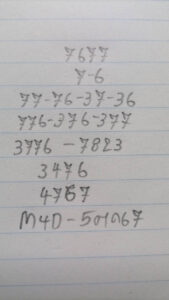 7677
7-6
77-76-37-36
776-376-377
3776 - 7823
3476
4767